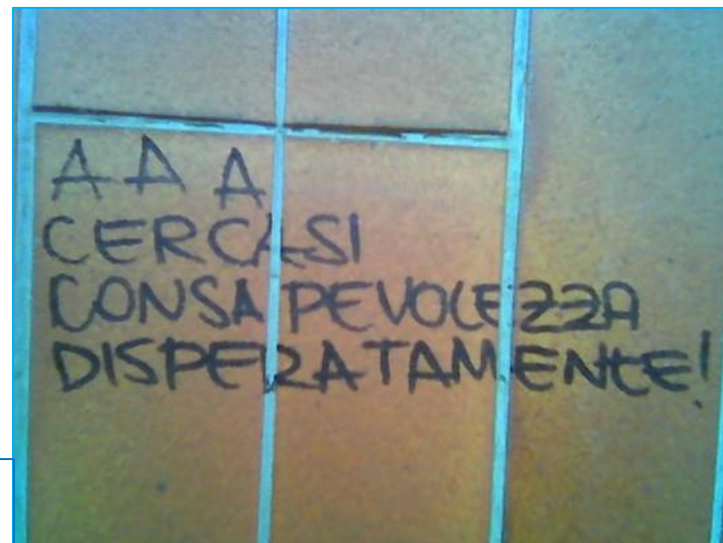 A A A
CERCASI
CONSAPEVOLEZZA
DISPERATAMENTE!